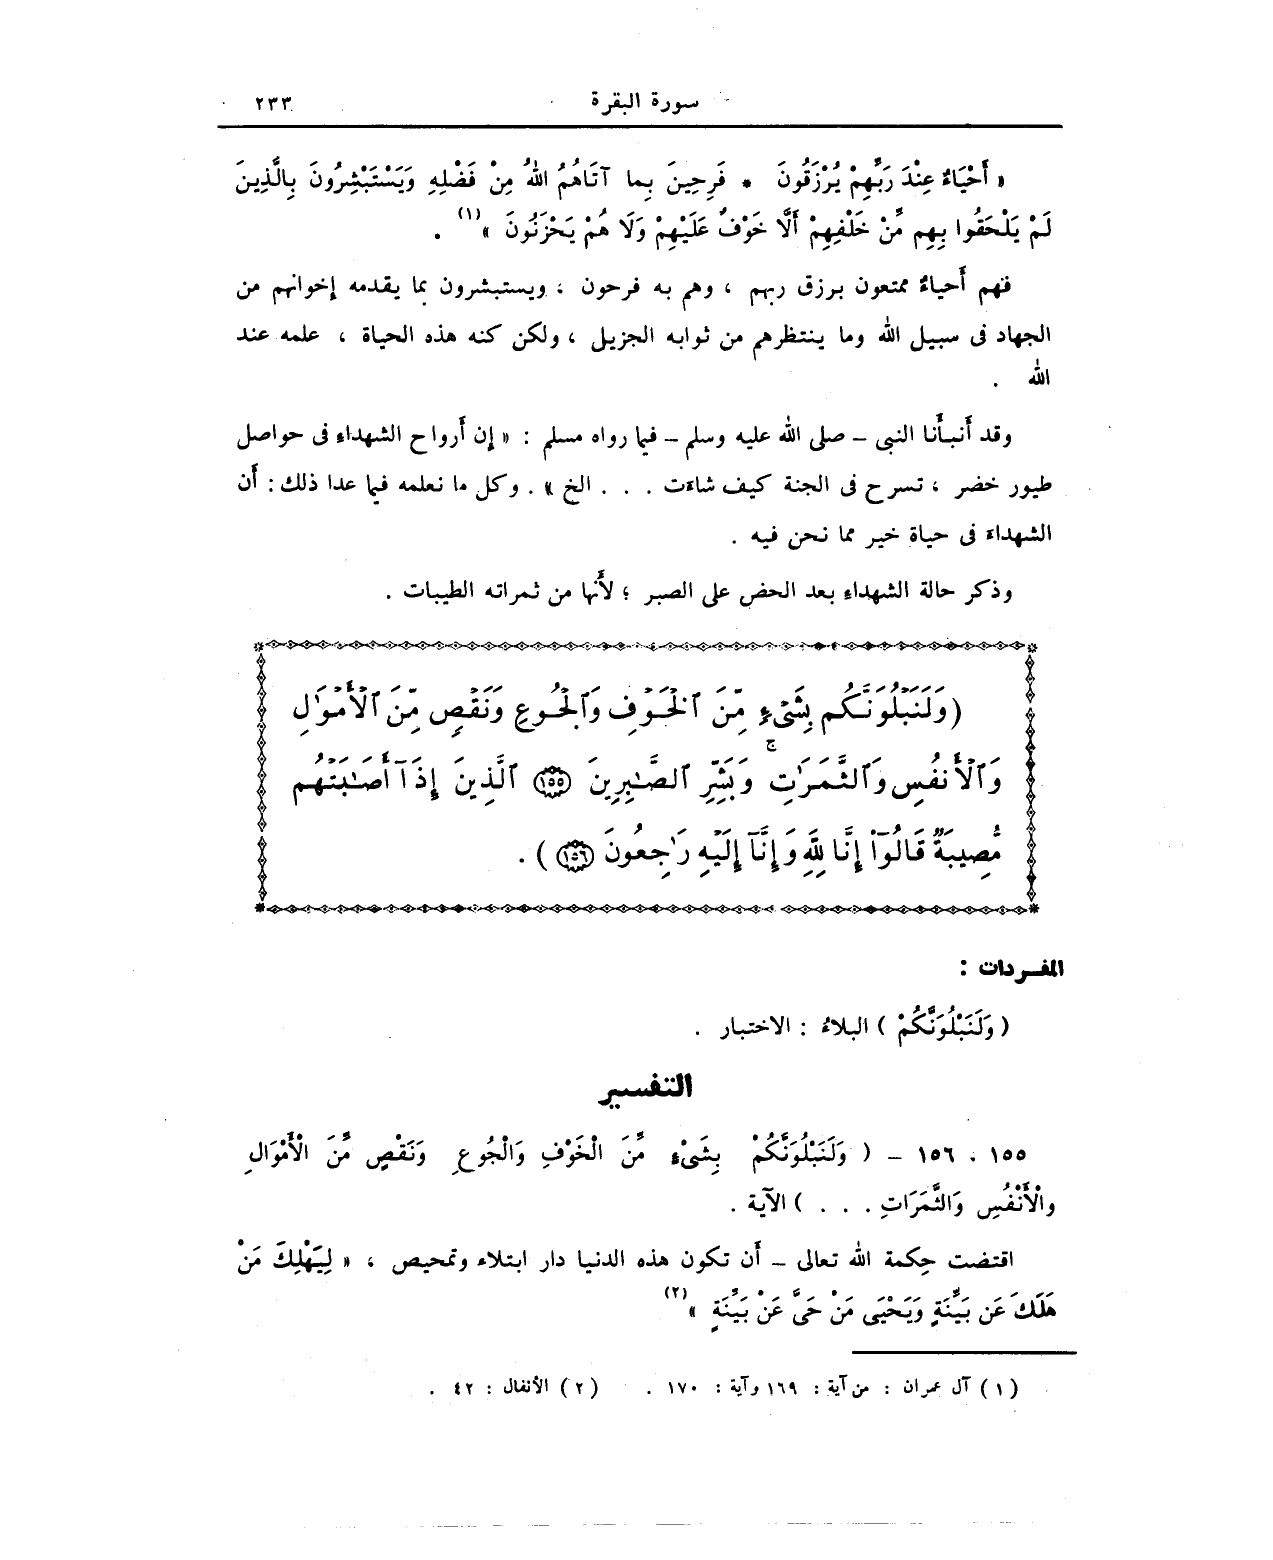 سورة البقرة ٢٣٣
« أَحْيَاءٌ عِنْدَ رَبِّهِمْ يُرْزَقُونَ * فَرِحِينَ بِما آتَاهُمُ اللهُ مِنْ فَضْلِهِ وَيَسْتَبْشِرُونَ بِالَّذِينَ
لَمْ يَلْحَقُوا بِهِم مِّنْ خَلْفِهِمْ أَلَّا خَوْفٌ عَلَيْهِمْ وَلَا هُمْ يَحْزَنُونَ »(١) .
فهم أَحياءٌ ممتعون برزق ربهم ، وهم به فرحون ، ويستبشرون بما يقدمه إخوانهم من
الجهاد فى سبيل الله وما ينتظرهم من ثوابه الجزيل ، ولكن كنه هذه الحياة ، علمه عند
الله .
وقد أَنبأَنا النبى – صلى الله عليه وسلم – فيما رواه مسلم : « إن أَرواح الشهداءِ فى حواصل
طيور خضر ، تسرح فى الجنة كيف شاءَت . . . الخ » . وكل ما نعلمه فيما عدا ذلك : أَن
الشهداءَ فى حياة خير مما نحن فيه .
وذكر حالة الشهداءِ بعد الحض على الصبر ؛ لأَنها من ثمراته الطيبات .
( وَلَنَبْلُوَنَّكُم بِشَىْءٍ مِّنَ ٱلْخَوْفِ وَٱلْجُوعِ وَنَقْصٍ مِّنَ ٱلْأَمْوَٰلِ
وَٱلْأَنفُسِ وَٱلثَّمَرَٰتِ ۗ وَبَشِّرِ ٱلصَّٰبِرِينَ (١٥٥) ٱلَّذِينَ إِذَآ أَصَٰبَتْهُم
مُّصِيبَةٌ قَالُوٓاْ إِنَّا لِلَّهِ وَإِنَّآ إِلَيْهِ رَٰجِعُونَ (١٥٦) ) .
المفردات :
( وَلَنَبْلُوَنَّكُمْ ) البلاءُ : الاختبار .
التفسير
١٥٥ ، ١٥٦ – ( وَلَنَبْلُوَنَّكُمْ بِشَىْءٍ مِّنَ الْخَوْفِ وَالْجُوعِ وَنَقْصٍ مِّنَ الْأَمْوَالِ
والْأَنْفُسِ وَالثَّمَرَاتِ . . . ) الآية .
اقتضت حِكمة الله تعالى – أَن تكون هذه الدنيا دار ابتلاءٍ وتمحيص ، « لِيَهْلِكَ مَنْ
هَلَكَ عَن بَيِّنَةٍ وَيَحْيَى مَنْ حَىَّ عَنْ بَيِّنَةٍ »(٢)
(١) آل عمران : من آية : ١٦٩ وآية : ١٧٠ . (٢) الأنفال : ٤٢ .